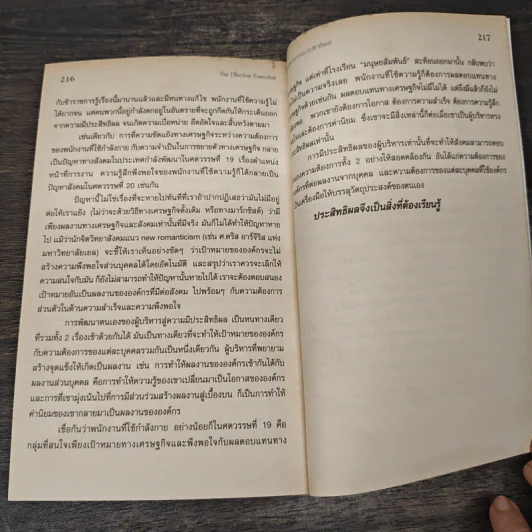 216
The Effective Executive
กับข้าราชการรู้เรื่องนี้มานานแล้วและมีหนทางแก้ไข พนักงานที่ใช้ความรู้ไม่
ได้ยากจน แต่คนพวกนี้อยู่กำลังตกอยู่ในอันตรายที่จะถูกกีดกันให้กระเด็นออก
จากความมีประสิทธิผล จนเกิดความเบื่อหน่าย อึดอัดใจและสิ้นหวังตามมา
เช่นเดียวกับ การที่ความขัดแย้งทางเศรษฐกิจระหว่างความต้องการ
ของพนักงานที่ใช้กำลังกาย กับความจำเป็นในการขยายตัวทางเศรษฐกิจ กลาย
เป็นปัญหาทางสังคมในประเทศกำลังพัฒนาในศตวรรษที่ 19 เรื่องตำแหน่ง
หน้าที่การงาน ความรู้สึกพึงพอใจของพนักงานที่ใช้ความรู้ก็ได้กลายเป็น
ปัญหาสังคมในศตวรรษที่ 20 เช่นกัน
ปัญหานี้ไม่ใช่เรื่องที่จะหายไปทันทีที่เราอ้าปากปฏิเสธว่ามันไม่มีอยู่
ต่อให้เราแย้ง (ไม่ว่าจะด้วยวิธีทางเศรษฐกิจดั้งเดิม หรือทางมาร์กซิสต์) ว่ามี
เพียงผลงานทางเศรษฐกิจและสังคมเท่านั้นที่มีจริง มันก็ไม่ได้ทำให้ปัญหาหาย
ไป แม้ว่านักจิตวิทยาสังคมแนว new romanticism (เช่น ศ.คริส อาร์จีริส แห่ง
มหาวิทยาลัยเยล) จะชี้ให้เราเห็นอย่างชัดๆ ว่าเป้าหมายขององค์กรจะไม่
สร้างความพึงพอใจส่วนบุคคลได้โดยอัตโนมัติ และสรุปว่าเราควรจะเลิกให้
ความสนใจกับมัน ก็ยังไม่สามารถทำให้ปัญหานั้นหายไปได้ เราจะต้องตอบสนอง
เป้าหมายอันเป็นผลงานขององค์กรที่มีต่อสังคม ไปพร้อมๆ กับความต้องการ
ส่วนตัวในด้านความสำเร็จและความพึงพอใจ
การพัฒนาตนเองของผู้บริหารสู่ความมีประสิทธิผล เป็นหนทางเดียว
ที่รวมทั้ง 2 เรื่องเข้าด้วยกันได้ มันเป็นทางเดียวที่จะทำให้เป้าหมายขององค์กร
กับความต้องการของแต่ละบุคคลรวมกันเป็นหนึ่งเดียวกัน ผู้บริหารที่พยายาม
สร้างจุดแข็งให้เกิดเป็นผลงาน เช่น การทำให้ผลงานขององค์กรเข้ากันได้กับ
ผลงานส่วนบุคคล คือการทำให้ความรู้ของเขาเปลี่ยนมาเป็นโอกาสขององค์กร
และการที่เขามุ่งเน้นไปที่การมีส่วนร่วมสร้างผลงานสู่เบื้องบน ก็เป็นการทำให้
ค่านิยมของเขากลายมาเป็นผลงานขององค์กร
เชื่อกันว่าพนักงานที่ใช้กำลังกาย อย่างน้อยก็ในศตวรรษที่ 19 คือ
กลุ่มที่สนใจเพียงเป้าหมายทางเศรษฐกิจและพึงพอใจกับผลตอบแทนทาง
217
แต่เท่าที่โรงเรียน "มนุษยสัมพันธ์" สะท้อนออกมานั้น กลับพบว่า
เป็นความจริงเลย พนักงานที่ใช้ความรู้ก็ต้องการผลตอบแทนทาง
เศรษฐกิจด้วยเช่นกัน ผลตอบแทนทางเศรษฐกิจมีไม่ได้ แต่ถึงมีแล้วก็ยังไม่
พอ พวกเขายังต้องการโอกาส ต้องการความสำเร็จ ต้องการความรู้สึก
ต้องการค่านิยม ซึ่งเขาจะมีสิ่งเหล่านี้ก็ต่อเมื่อเขาเป็นผู้บริหารทรง
ประสิทธิผลเท่านั้น
การมีประสิทธิผลของผู้บริหารเท่านั้นที่จะทำให้สังคมสามารถตอบ
ความต้องการทั้ง 2 อย่างให้สอดคล้องกัน อันได้แก่ความต้องการของ
องค์กรที่ต่อผลงานจากบุคคล และความต้องการของแต่ละบุคคลที่ใช้องค์กร
เป็นเครื่องมือให้บรรลุวัตถุประสงค์ของตนเอง
ประสิทธิผลจึงเป็นสิ่งที่ต้องเรียนรู้